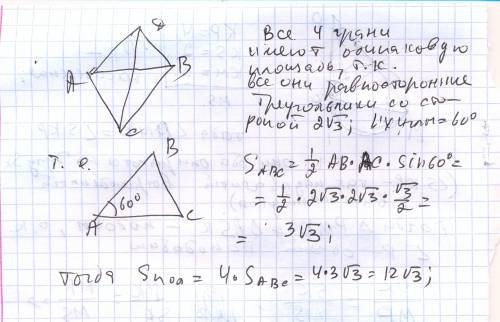 Все 4 грани
имеют одинаковую
площадь, т.к.
все они равносторонние
треугольники со сто-
роной 2√3; их углы=60°
A
B
C
т. е.
B
60°
A
C
S_ABC = 1/2 AB·AC·sin60° =
= 1/2 · 2√3 · 2√3 · √3/2 =
= 3√3;
тогда Sпов = 4·S_ABC = 4·3√3 = 12√3;